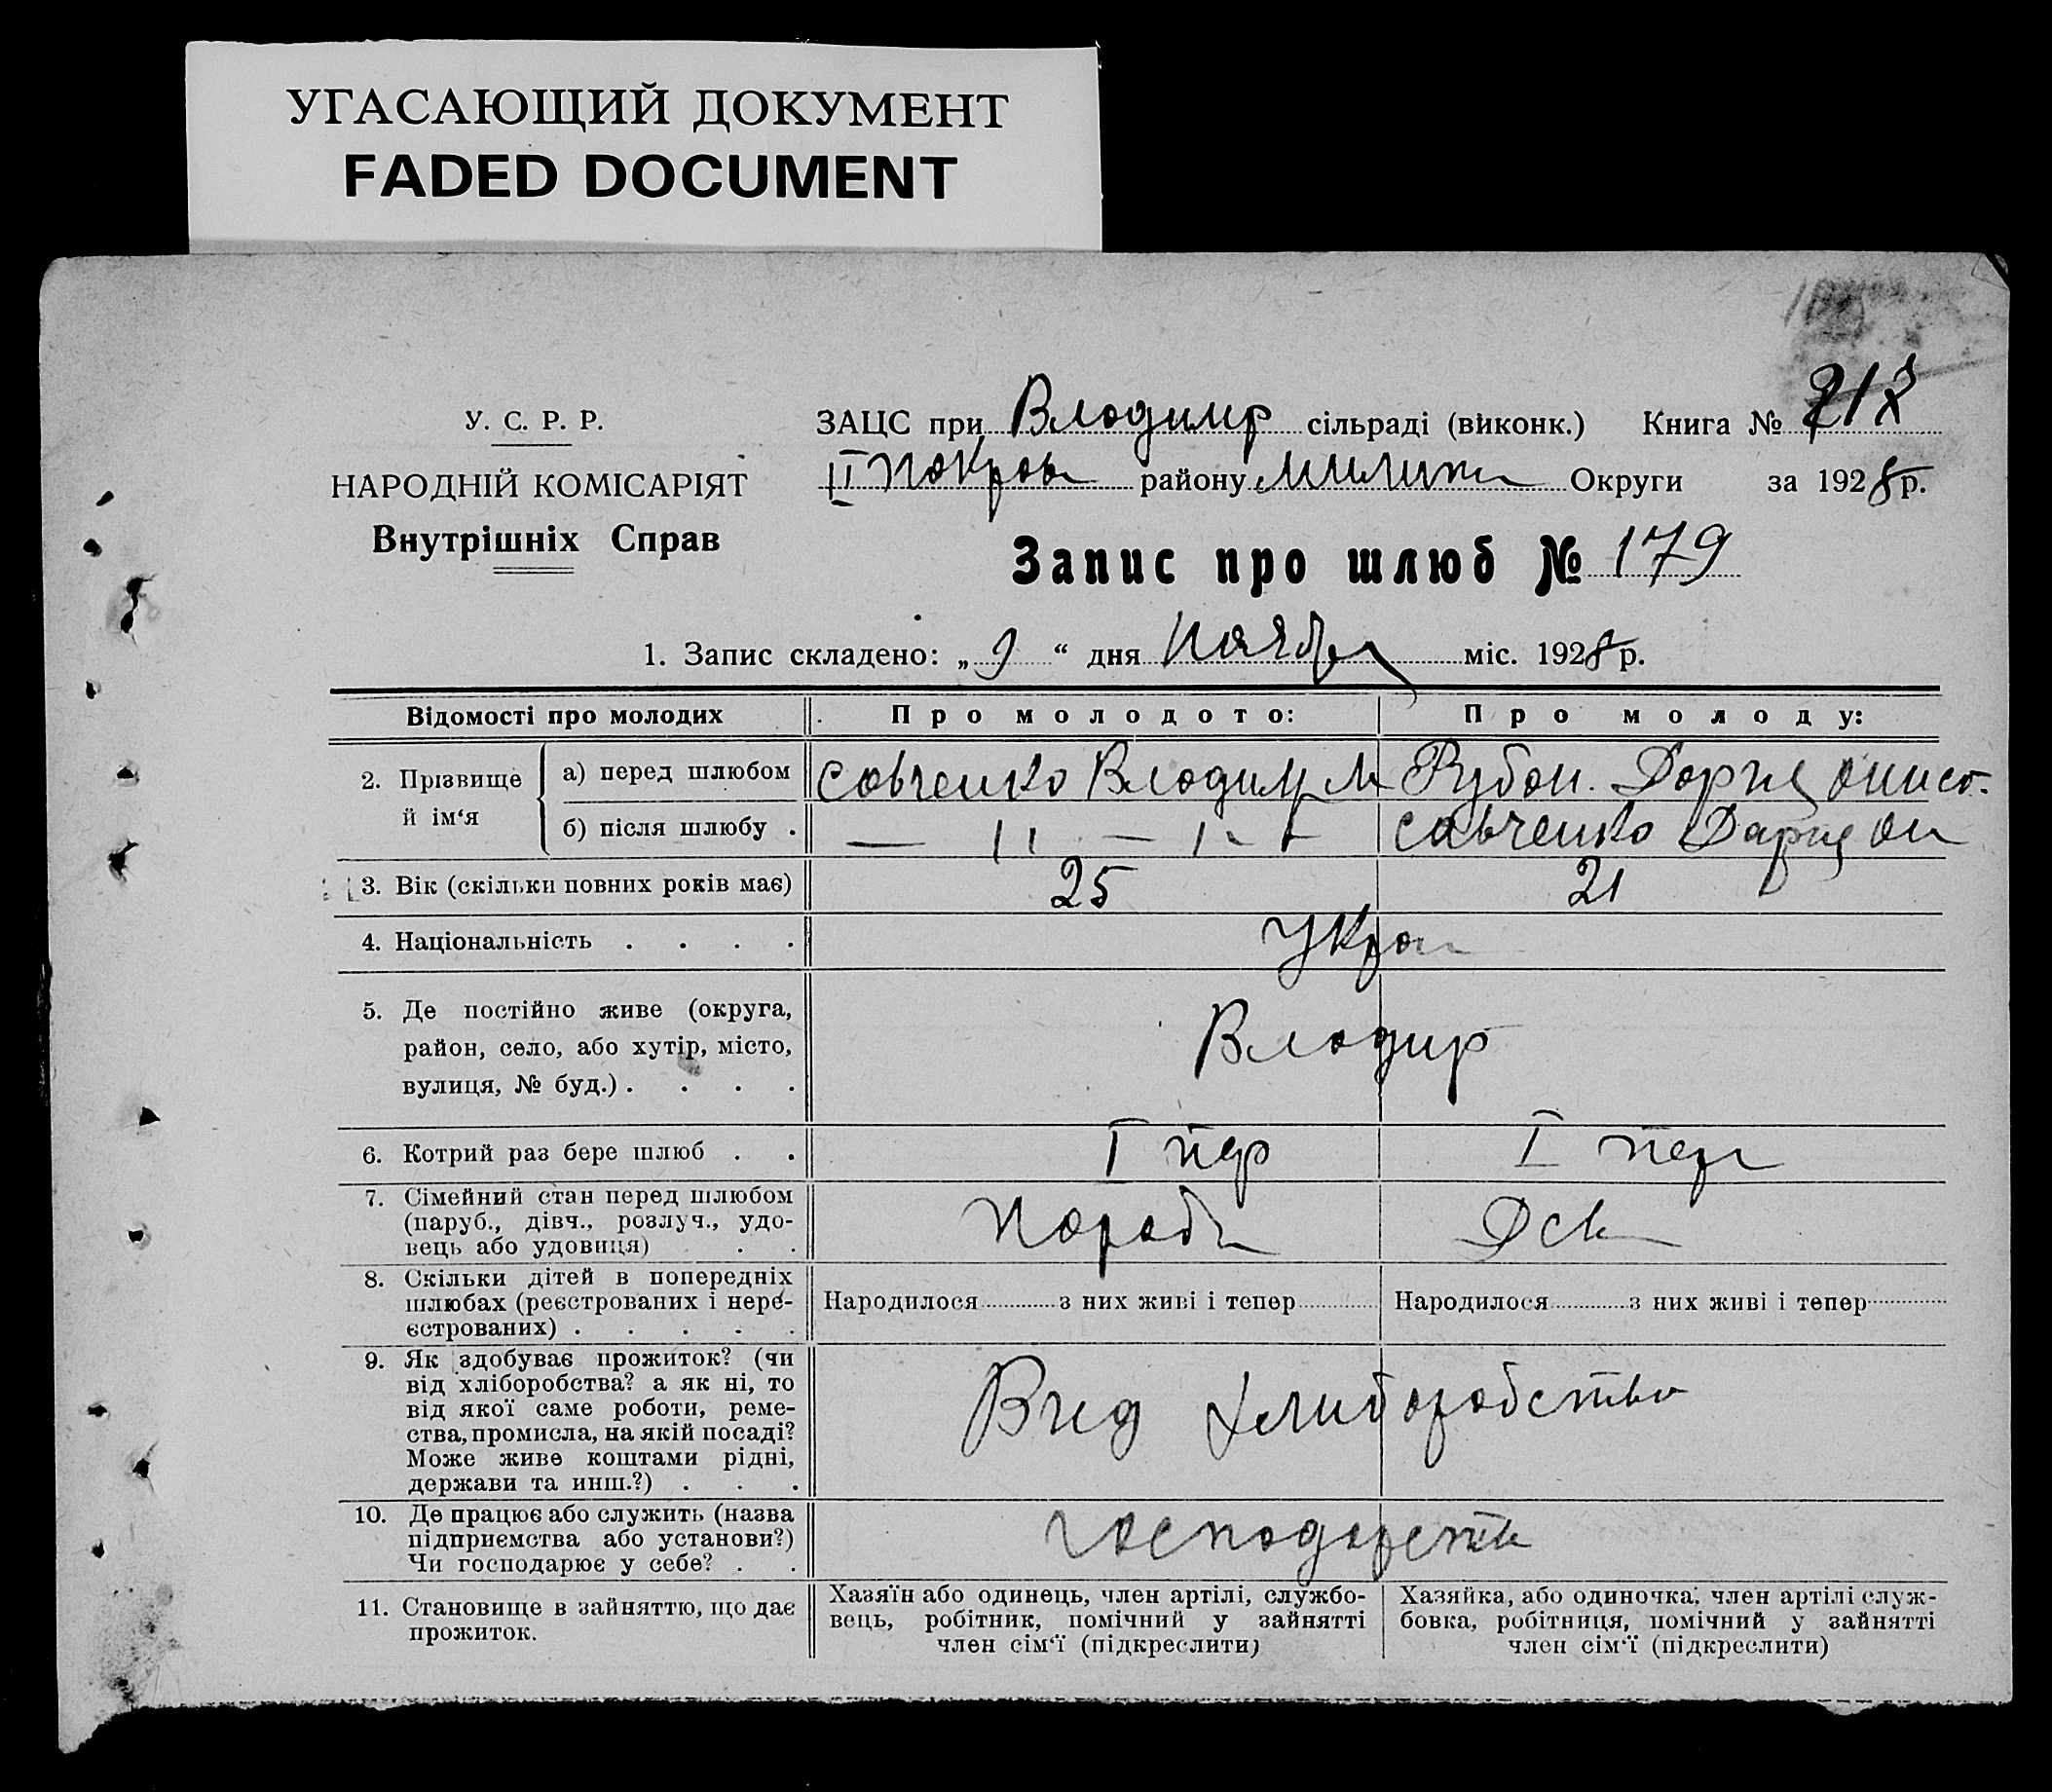 УГАСАЮЩИЙ ДОКУМЕНТ
FADED DOCUMENT
У. С. Р. Р.
НАРОДНІЙ КОМІСАРІЯТ
Внутрішніх Справ
ЗАЦС при Влодимир сільраді (виконк.) Книга №
II Покров району Округи за 1928 р.
Запис про шлюб № 179
1. Запис складено: „ 9 “ дня Ноября міс. 1928 р.
Відомості про молодих Про молодого: Про молоду:
2. Прізвище й ім‘я
а) перед шлюбом Савченко Влодимир Рубан. Дария Онисо.
б) після шлюбу . — 11 — Савченко Дария Он
3. Вік (скільки повних років має) 25 21
4. Національність . . . . Укра
5. Де постійно живе (округа,
район, село, або хутір, місто,
вулиця, № буд.) . . . . Влодир
6. Котрий раз бере шлюб . . I пер I пер
7. Сімейний стан перед шлюбом
(паруб., дівч., розлуч., удо-
вець або удовиця) . . Пароб
8. Скільки дітей в попередніх
шлюбах (реєстрованих і нере-
єстрованих) . . . . .
Народилося з них живі і тепер Народилося з них живі і тепер
9. Як здобуває прожиток? (чи
від хліборобства? а як ні, то
від якої саме роботи, реме-
ства, промисла, на якій посаді?
Може живе коштами рідні,
держави та инш.?) . . .
Вид хлиборобства
10. Де працює або служить (назва
підприємства або установи?)
Чи господарює у себе? . .
господарств
11. Становище в зайняттю, що дає
прожиток.
Хазяїн або одинець, член артілі, службо-
вець, робітник, помічний у зайнятті
член сім‘ї (підкреслити)
Хазяйка, або одиночка, член артілі служ-
бовка, робітниця, помічний у зайнятті
член сім‘ї (підкреслити)